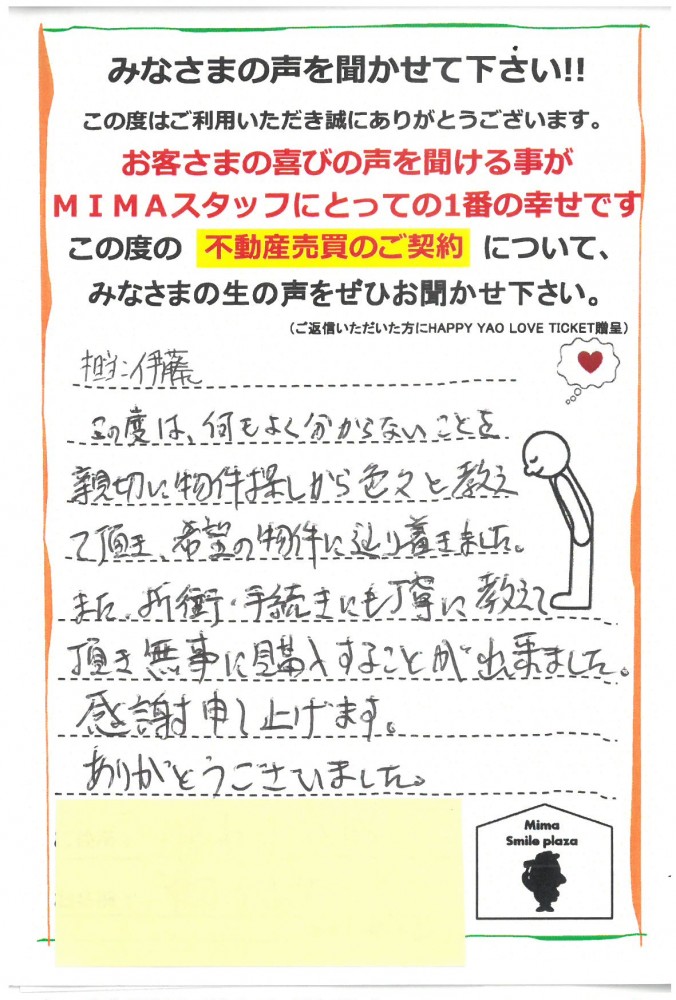 みなさまの声を聞かせて下さい!!
この度はご利用いただき誠にありがとうございます。
お客さまの喜びの声を聞ける事が
ＭＩＭＡスタッフにとっての1番の幸せです
この度の 不動産売買のご契約 について、
みなさまの生の声をぜひお聞かせ下さい。
（ご返信いただいた方にHAPPY YAO LOVE TICKET贈呈）
担当：伊藤
この度は、何もよく分からないことを
親切に物件探しから色々と教え
て頂き、希望の物件に辿り着きました。
また、折衝・手続きにも丁寧に教えて
頂き無事に購入することが出来ました。
感謝申し上げます。
ありがとうございました。
Mima
Smile plaza